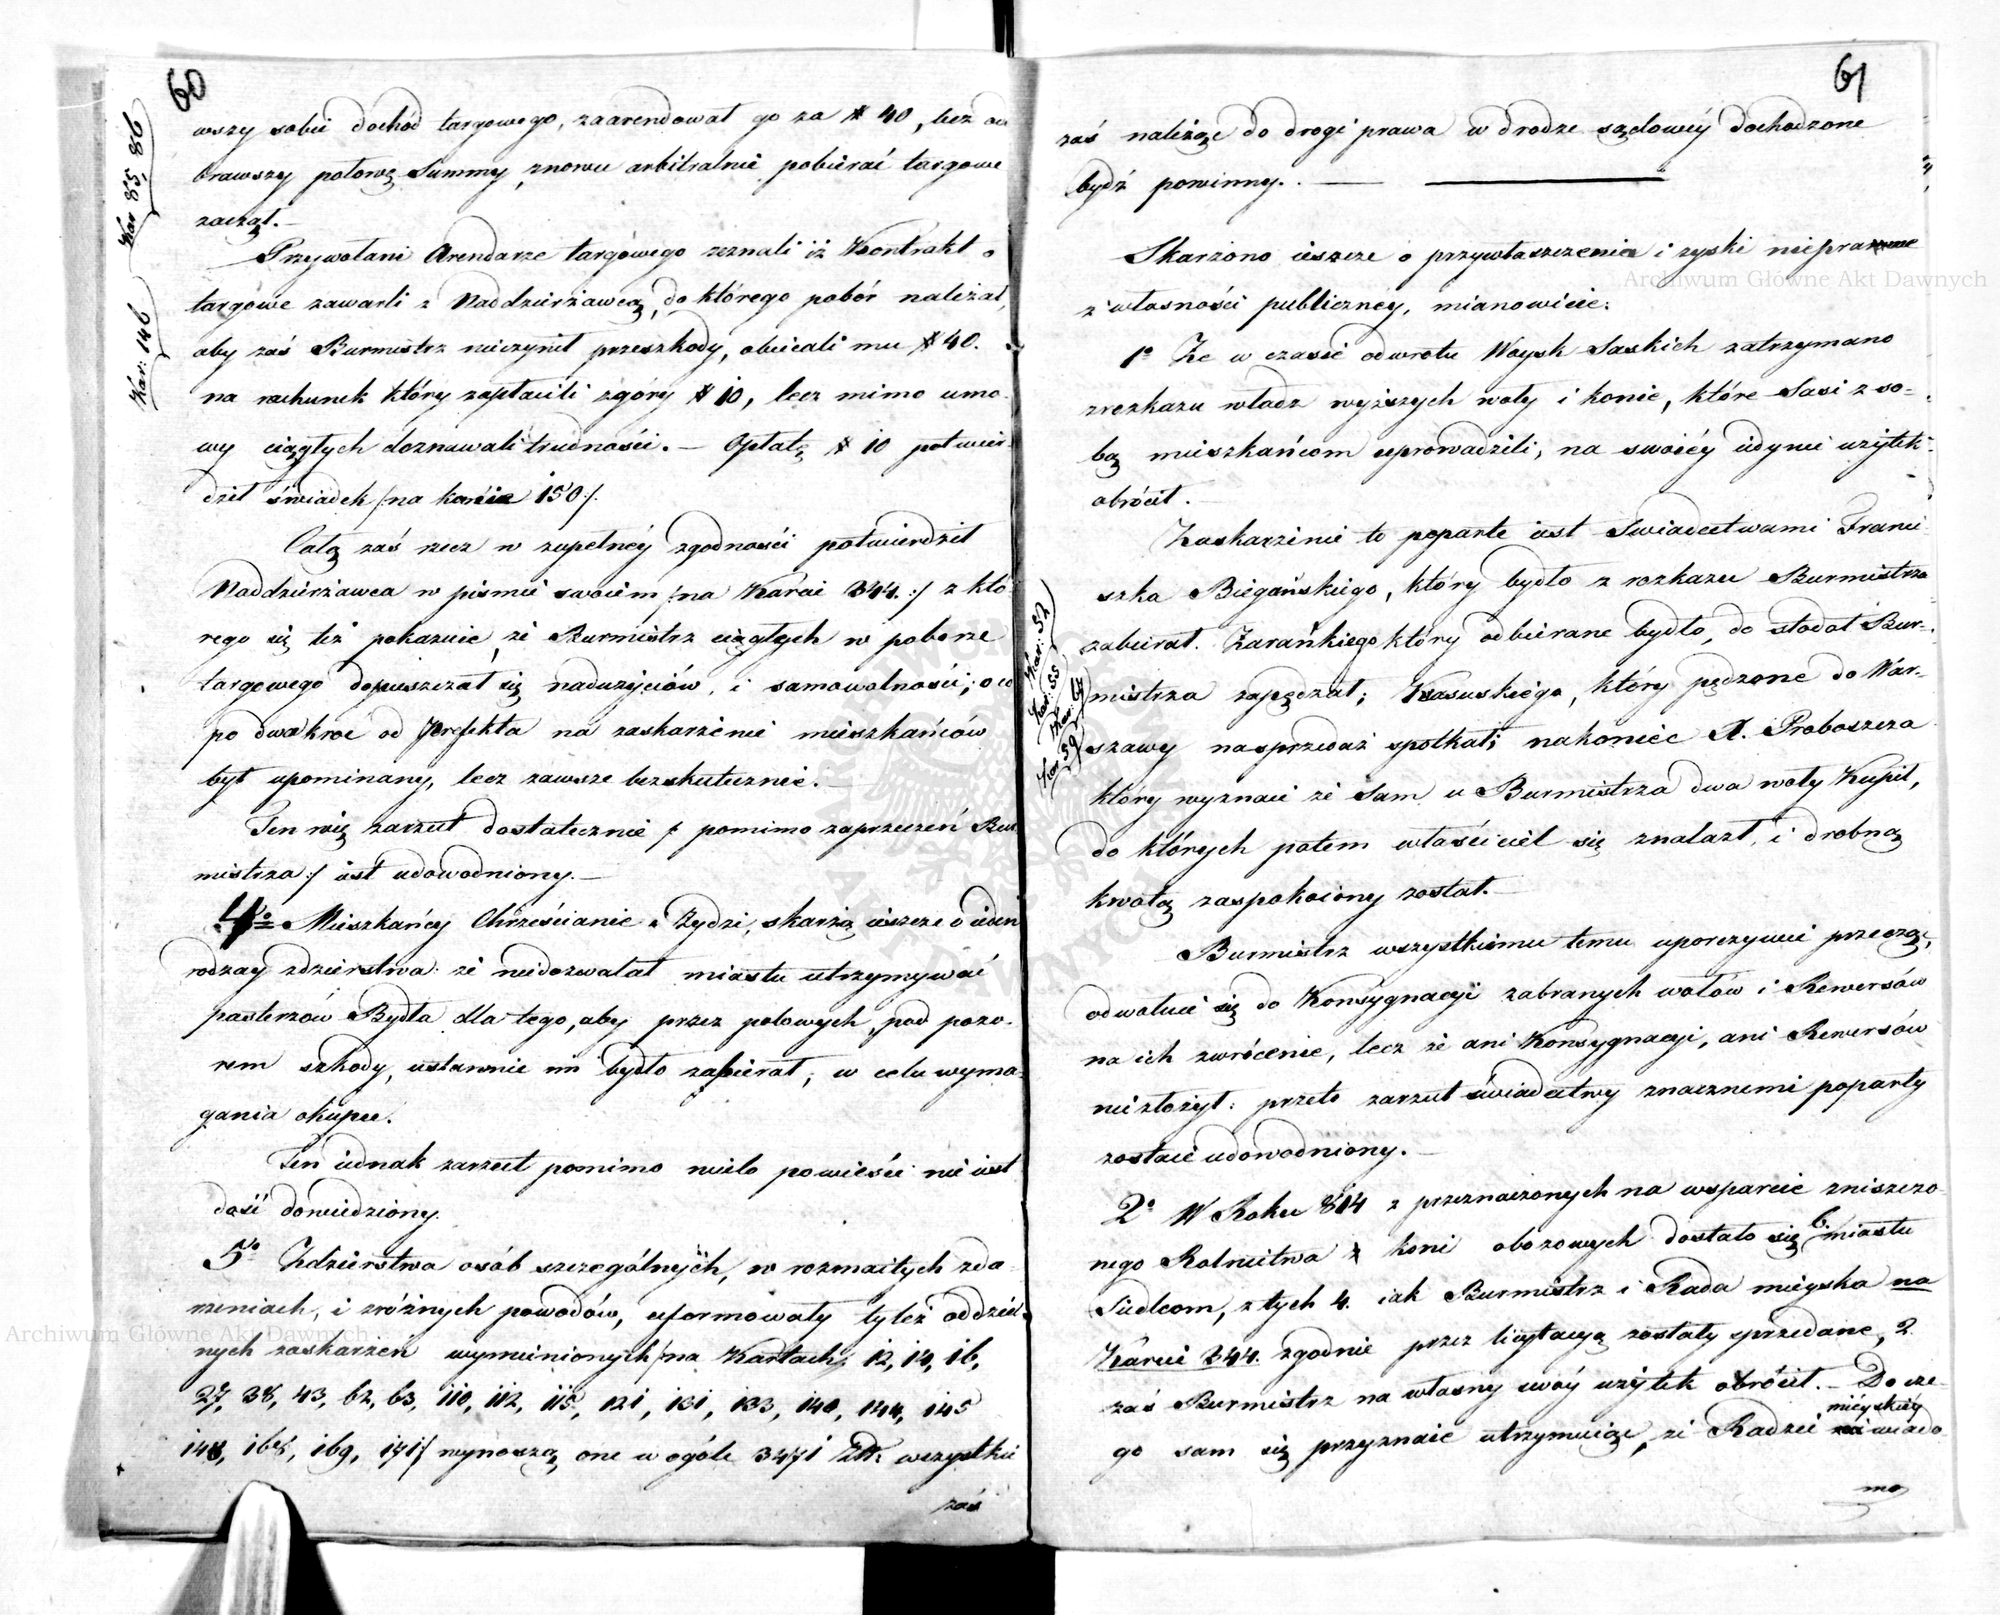 60
wszy sobie dochód targowego, zaarendował go za # 40, lecz ode
brawszy połowę Summy, znowu arbitralnie pobierać targowe
zaczął.—
Kar 85, 86
Przywołani Arendarze targowego zeznali iż Kontrakt o
targowe zawarli z Naddzierżawcą, do którego pobór należał,
aby zaś Burmistrz nieczynił przeszkody, obiecali mu # 40.
Kar: 146
na rachunek który zapłacili zgóry # 10, lecz mimo umo-
wy ciągłych doznawali trudności.— Opłatę # 10 potwier-
dził świadek /:na karcie 150:/.
Całą zaś rzecz w zupełnéy zgodności potwierdził
Naddzierżawca w pismie swoiem /:na Karcie 244.:/ z któ-
rego się też pokazuie, że Burmistrz ciągłych w poborze
targowego dopuszczał się nadużyciów, i samowolności; o co
po dwakroc od Prefekta na zaskarżenie mieszkańców
był upominany, lecz zawsze bezskutecznie.—
Ten więc zarzut dostatecznie /: pomimo zaprzeczeń Bur-
mistrza:/ iest udowodniony.—
4to Mieszkańcy Chrześcianie i Żydzi, skarżą ieszcze o ieden
rodzay zdzierstwa: że niedozwalał miastu utrzymywać
pasterzów Bydła dla tego, aby przez polowych, pod pozo-
rem szkody, ustawnie im bydło zabierał, w celu wyma-
gania okupu.
Ten iednak zarzut pomimo wielu powieści nie iest
dość dowiedziony.
5to Zdzierstwa osób szczególnych, w rozmaitych zda-
rzeniach, i zróżnych powodów, uformowały tyleż oddziel-
nych zaskarżeń wymienionych /:na Kartach, 12, 14, 16,
27, 38, 43, 62, 63, 110, 112, 115, 121, 131, 133, 140, 144, 145
148, 168, 169, 171:/ wynoszą one w ogóle 3471 Złł: wszystkie
zaś
61
zaś należące do drogi prawa w drodze sądowéy dochodzone
bydź powinny.—
Skarżono ieszcze o przywłaszczenia i zyski nieprawne
z własności publiczney, mianowicie:
1o Że w czasie odwrotu Woysk Saskich zatrzymano
zrozkazu władz wyższych woły i konie, które Sasi z so-
bą mieszkańcom uprowadzili, na swoiéy iedynie użytek
obrócił.
Zaskarżenie to poparte iest Świadectwami Franci-
szka Biegańskiego, który bydło z rozkazu Burmistrza
Kar: 52
zabierał. Żarańkiego który odbierane bydło, do stodół Bur-
Kar: 55
mistrza zapędzał; Kossuskiego, który pędzone do War-
Kar: 67
szawy nasprzedaż spotkał; nakoniec X. Proboszcza
Kar 59
który wyznaie że Sam u Burmistrza dwa woły Kupił,
do których potem właściciel się znalazł, i drobną
kwotą zaspokoiony został.—
Burmistrz wszystkiemu temu uporczywie przecząc,
odwołuie się do Konsygnacyi zabranych wołów i Rewersów
na ich zwrócenie, lecz że ani Konsygnacyi, ani Rewersów
niezłożył: przeto zarzut świadectwy znacznemi poparty
zostaie udowodniony.—
2o W Roku 814 z przeznaczonych na wsparcie zniszczo-
nego Rolnictwa koni obozowych dostało się 6. miastu
Siedlcom, z tych 4. iak Burmistrz i Rada mieyska na
Karcie 244. zgodnie przez licytacyą zostały sprzedane, 2
zaś Burmistrz na własny swóy użytek obrócił.— Do cze-
go sam się przyznaie utrzymuiąc, że Radzie mieyskiéy wiado-
mo
Archiwum Główne Akt Dawnych
Archiwum Główne Akt Dawnych